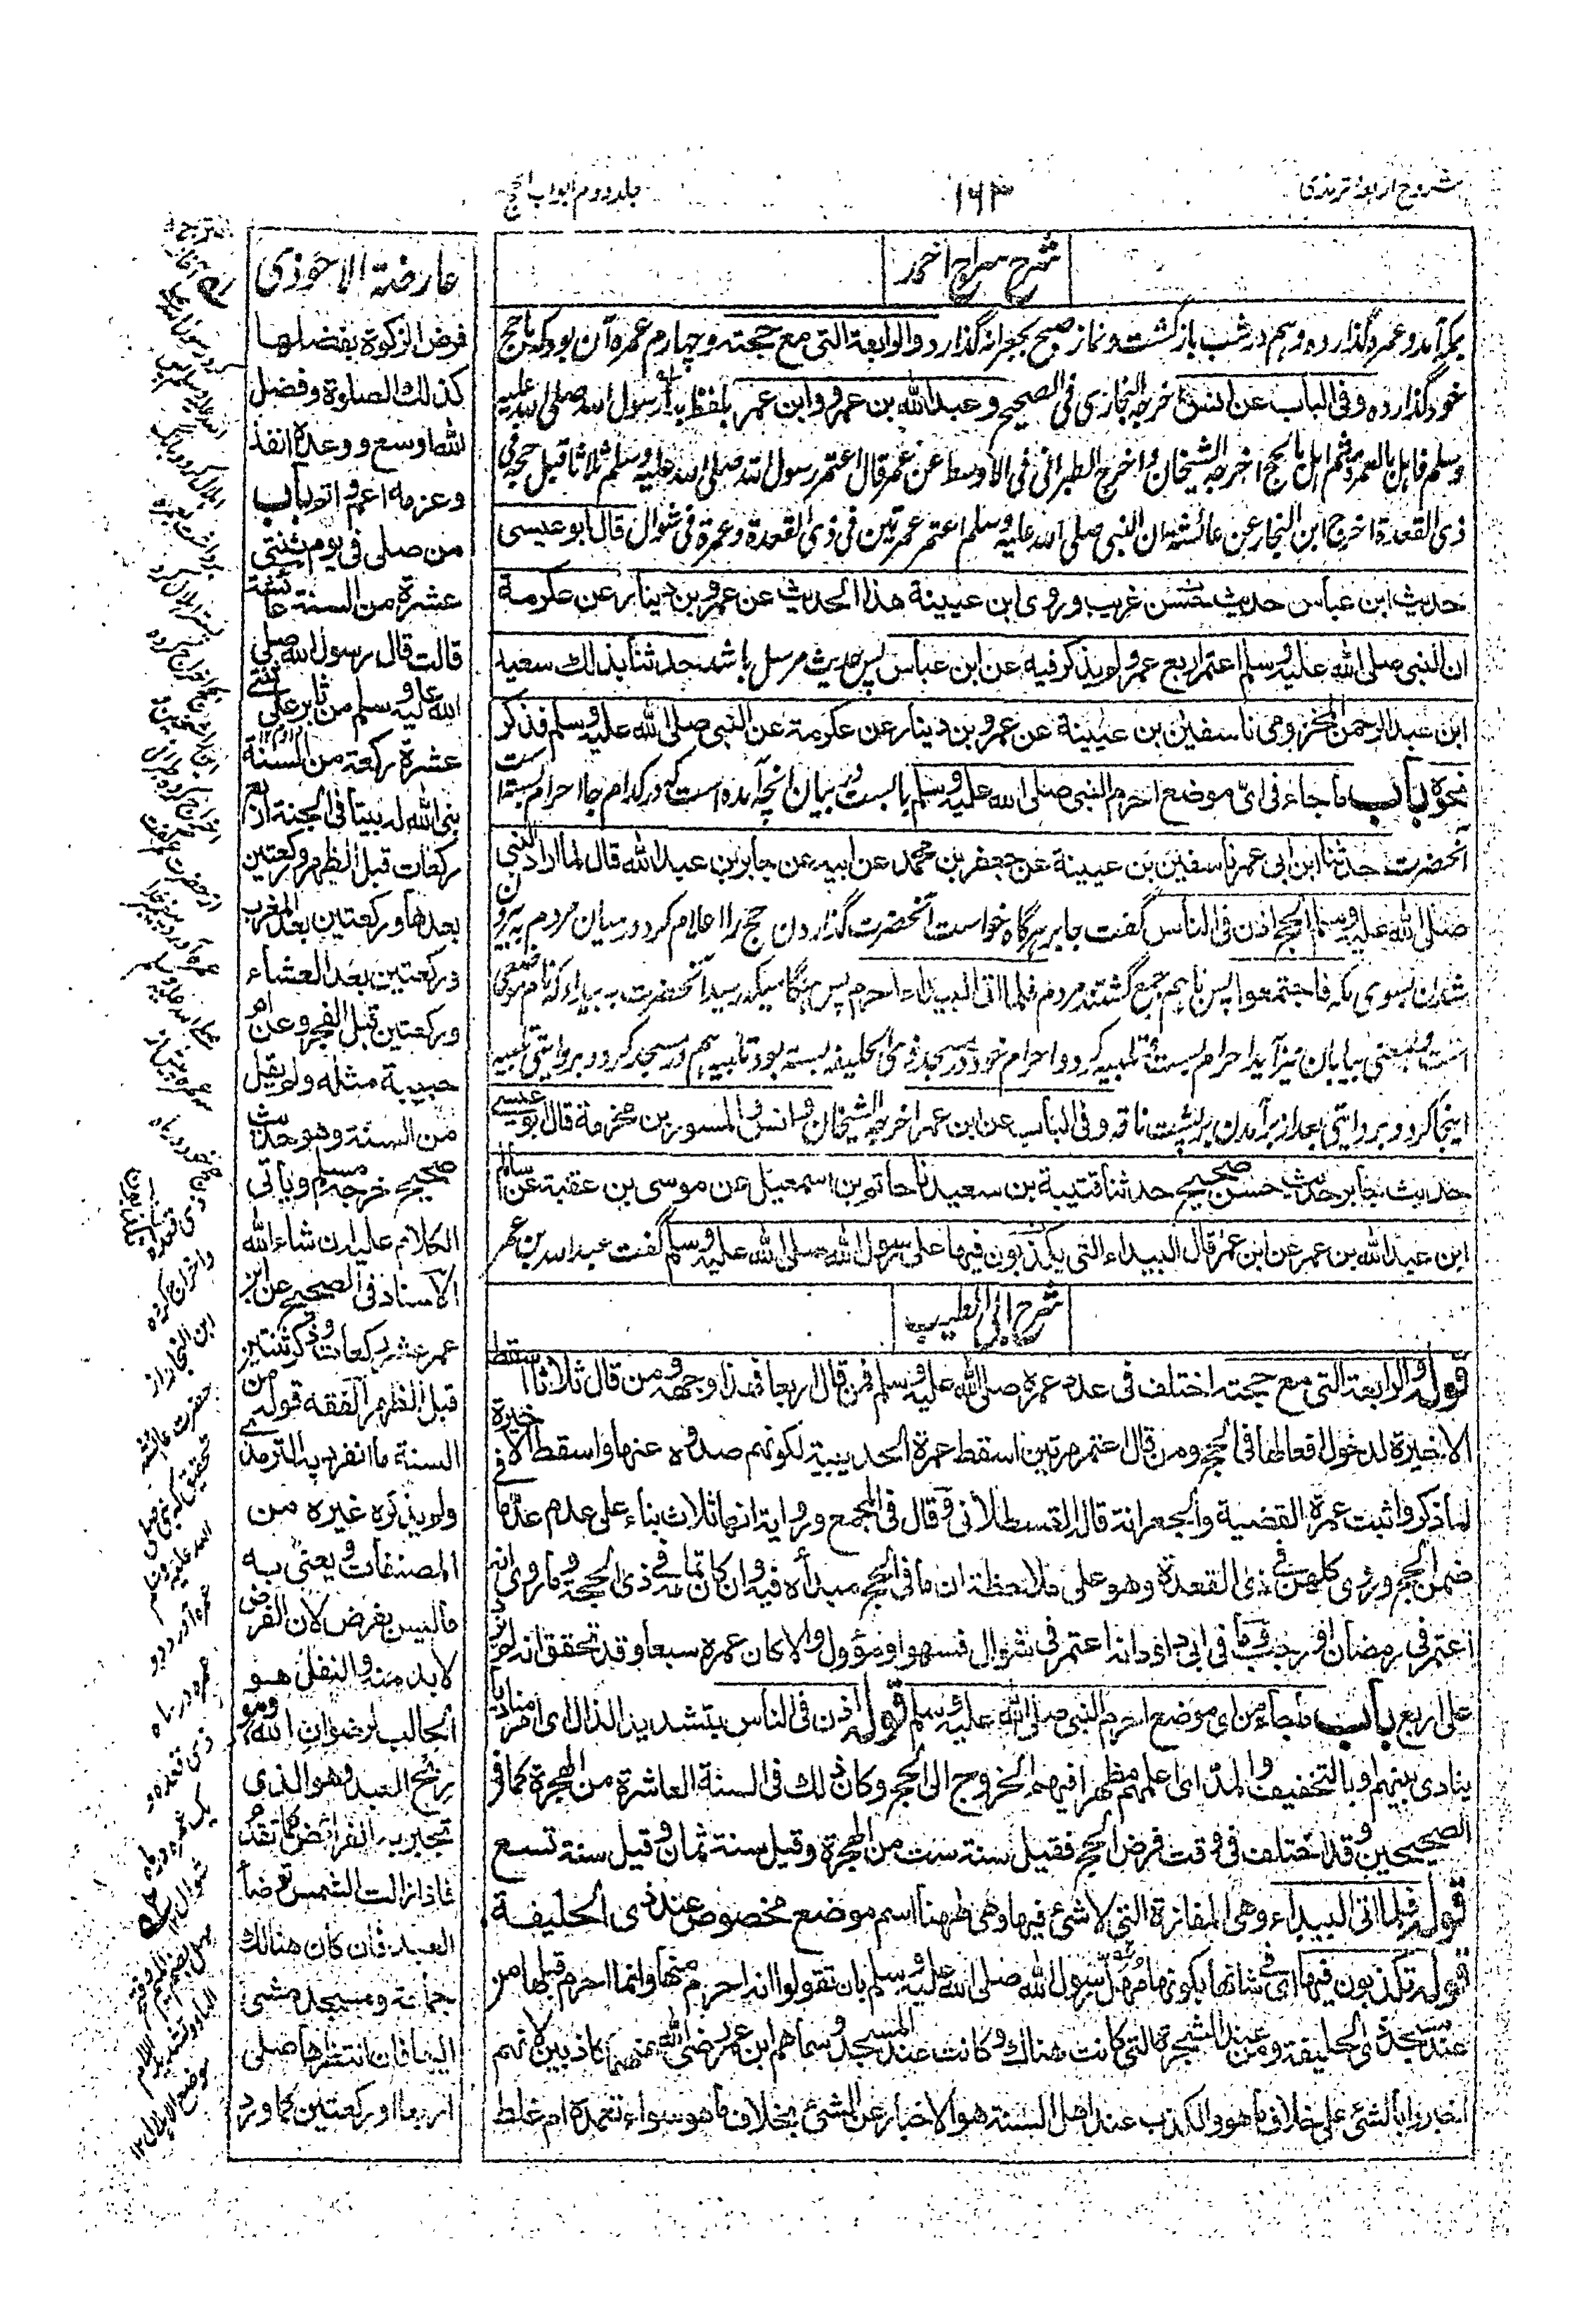 شروح اربعۂ ترمذی
۱۶۳
جلد دوم ابواب الحج
شرح سراج احمد
بمکہ آمد و عمرہ گذاردہ و ہم در شب بازگشت و نماز صبح بجعرانہ گذارد والرابعة التی مع حجته و چہارم عمرہ آن بود کہ با حج
خود گذاردہ وفی الباب عن انس اخرجہ البخاری فی الصحیح وعبد الله بن عمرو وابن عمر بلفظ بدأ رسول الله صلی الله علیه
وسلم فاہل بالعمرة ثم اہل بالحج اخرجہ الشیخان واخرج الطبرانی فی الاوسط عن عمر قال اعتمر رسول الله صلی الله علیه وسلم ثلاثا قبل حجه فی
ذی القعدة اخرج ابن النجار عن عائشة ان النبی صلی الله علیه وسلم اعتمر عمرتین فی ذی القعدة وعمرة فی شوال قال ابو عیسی
حدیث ابن عباس حدیث حسن غریب وروی ابن عیینة هذا الحدیث عن عمرو بن دینار عن عکرمة
ان النبی صلی الله علیه وسلم اعتمر اربع عمر ولم یذکر فیه عن ابن عباس پس حدیث مرسل باشد حدثنا بذلك سعید
ابن عبد الرحمن المخزومی نا سفین بن عیینة عن عمرو بن دینار عن عکرمة عن النبی صلی الله علیه وسلم فذکر
نحوه باب ما جاء فی ای موضع احرم النبی صلی الله علیه وسلم بابست در بیان انچہ آمدہ است کہ در کدام جا احرام بستہ است
آنحضرت حدثنا ابن ابی عمر نا سفین بن عیینة عن جعفر بن محمد عن ابیه عن جابر بن عبد الله قال لما اراد النبی
صلی الله علیه وسلم الحج اذن فی الناس گفت جابر ہرگاہ خواست آنحضرت گذاردن حج را اعلام کرد در میان مردم بہ بیرون
شدن بسوی مکہ فاجتمعوا پس باہم جمع گشتند مردم فلما اتی البیداء احرم پس ہنگامیکہ رسید آنحضرت بہ بیداء کہ نام موضعی
است وبمعنی بیابان نیز آید احرام بست تلبیہ کرد و احرام خود در مسجد ذی الحلیفہ بستہ بود تلبیہ ہم در مسجد کرد و بروایتی تلبیہ
اینجا کرد و بروایتی بعد از برآمدن بر پشت ناقہ وفی الباب عن ابن عمر اخرجہ الشیخان وانس والمسور بن مخرمة قال ابو عیسی
حدیث جابر حدیث حسن صحیح حدثنا قتیبة بن سعید نا حاتم بن اسمعیل عن موسی بن عقبة عن سالم
ابن عبد الله بن عمر عن ابن عمر قال البیداء التی یکذبون فیها علی رسول الله صلی الله علیه وسلم گفت عبد الله بن عمر
شرح ابی الطیب
قوله والرابعة التی مع حجته اختلف فی عدد عمره صلی الله علیه وسلم فمن قال اربعا فهذا وجهه ومن قال ثلاثا اسقط
الاخیرة لدخول افعالها فی الحج ومن قال اعتمر مرتین اسقط عمرة الحدیبیة لکونهم صدوه عنها واسقط الاخیرة
لما ذکر واثبت عمرة القضیة والجعرانة قاله القسطلانی وقال فی المجمع وروایة انها ثلاث بناء علی عدم عدّ ما فی
ضمن الحج وروی کلهن فی ذی القعدة وهو علی ملاحظة ان ما فی الحج مبدأه فیه وان کان تمامه فی ذی الحجة وما روی انه
اعتمر فی رمضان او رجب وما فی ابی داود انه اعتمر فی شوال فسهو او مؤول والا کان عمره سبعا وقد تحقق انه لم یزد
علی اربع باب ما جاء من ای موضع احرم النبی صلی الله علیه وسلم قوله اذن فی الناس بتشدید الذال ای امر منادیا
ینادی بینهم او بالتخفیف والمد ای اعلمهم مظهرا فیهم الخروج الی الحج وکان ذلك فی السنة العاشرة من الهجرة کما فی
الصحیحین وقد اختلف فی وقت فرض الحج فقیل سنة ست من الهجرة وقیل سنة ثمان وقیل سنة تسع
قوله فلما اتی البیداء وهی المفازة التی لا شیء فیها وهی ههنا اسم موضع مخصوص عند ذی الحلیفة
قوله تکذبون فیها ای فی شانها بکونها مهل رسول الله صلی الله علیه وسلم بان تقولوا انه احرم منها وانما احرم قبلها من
عند مسجد ذی الحلیفة ومن عند الشجرة التی کانت هناك وکانت عند المسجد وسماهم ابن عمر رضی الله عنهما کاذبین لانهم
اخبروا بالشئ علی خلاف ما هو والکذب عند اهل السنة هو الاخبار عن الشئ بخلاف ما هو سواء تعمده ام غلط
عارضة الاحوذی
فرض الزکوة بفضلها
کذلك الصلوة وفضل
الله اوسع ووعده انفذ
وعزمه اعم واتم باب
من صلی فی یوم ثنتی
عشرة من السنة عائشة
قالت قال رسول الله صلی
الله علیه وسلم من ثابر علی ثنتی
عشرة رکعة من السنة
بنی الله له بیتا فی الجنة اربع
رکعات قبل الظهر ورکعتین
بعدها ورکعتین بعد المغرب
ورکعتین بعد العشاء
ورکعتین قبل الفجر وعن ام
حبیبة مثله ولم یقل
من السنة وهو حدیث
صحیح خرجه مسلم ویاتی
الکلام علیه ان شاء الله
الاسناد فی الصحیح عن ابن
عمر عشر رکعات وذکر ثنتین
قبل الظهر الفقه قوله من
السنة ما انفرد به الترمذی
ولم یذکره غیره من
المصنفات ویعنی به
ما لیس بفرض لان الفرض
لا بد منه والنفل هو
الجالب لرضوان الله وهو
ربح العبد وهو الذی
تجبر به الفرائض کما تقدم
فاذا زالت الشمس توضأ
العبد فان کان هنالك
جماعة ومسجد مشی
الیها فان انتظرها صلی
اربعا او رکعتین کما ورد